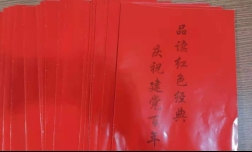 品读红色经典
庆祝建党百年